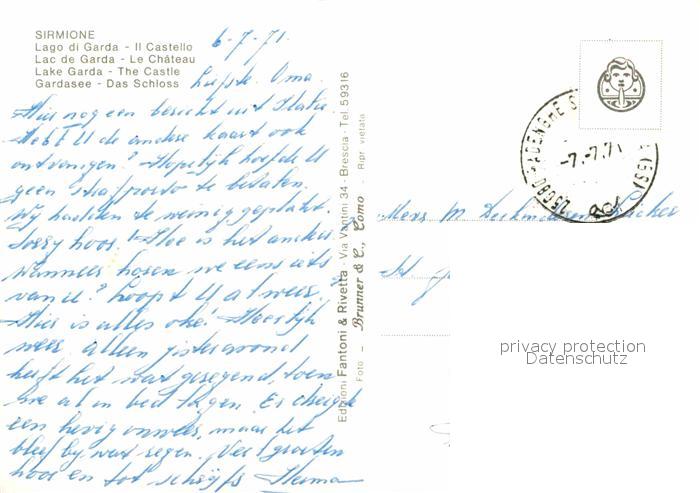 SIRMIONE
Lago di Garda - Il Castello
Lac de Garda - Le Château
Lake Garda - The Castle
Gardasee - Das Schloss
6-7-71.
Liefste Oma.
Hier nog een bericht uit Italië
Hebt U de andere kaart ook
ontvangen? Hopelijk hoefde U
geen strafporto te betalen.
Wij hadden te weinig geplakt.
Sorry hoor. Hoe is het anders
Wanneer horen we eens iets
van U? Loopt U al weer.
Hier is alles oké! Heerlijk
weer alleen gisteravond
heeft het wat geregend, toen
we al in bed lagen. Er dreigde
een hevig onweer, maar het
bleef bij wat regen. Veel groeten
hoor en tot schrijfs Herma
Edizioni Fantoni & Rivetta - Via Vantini 34 - Brescia - Tel. 59316
Foto - Brunner & C., Como - Ripr. vietata
-7.-7.71
Mevr. M.
privacy protection
Datenschutz